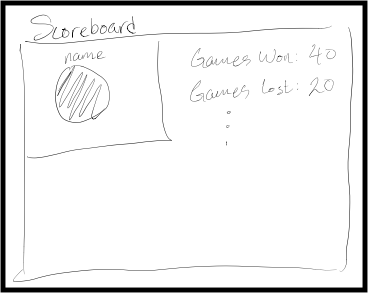 Scoreboard
name
Games Won: 40
Games Lost: 20